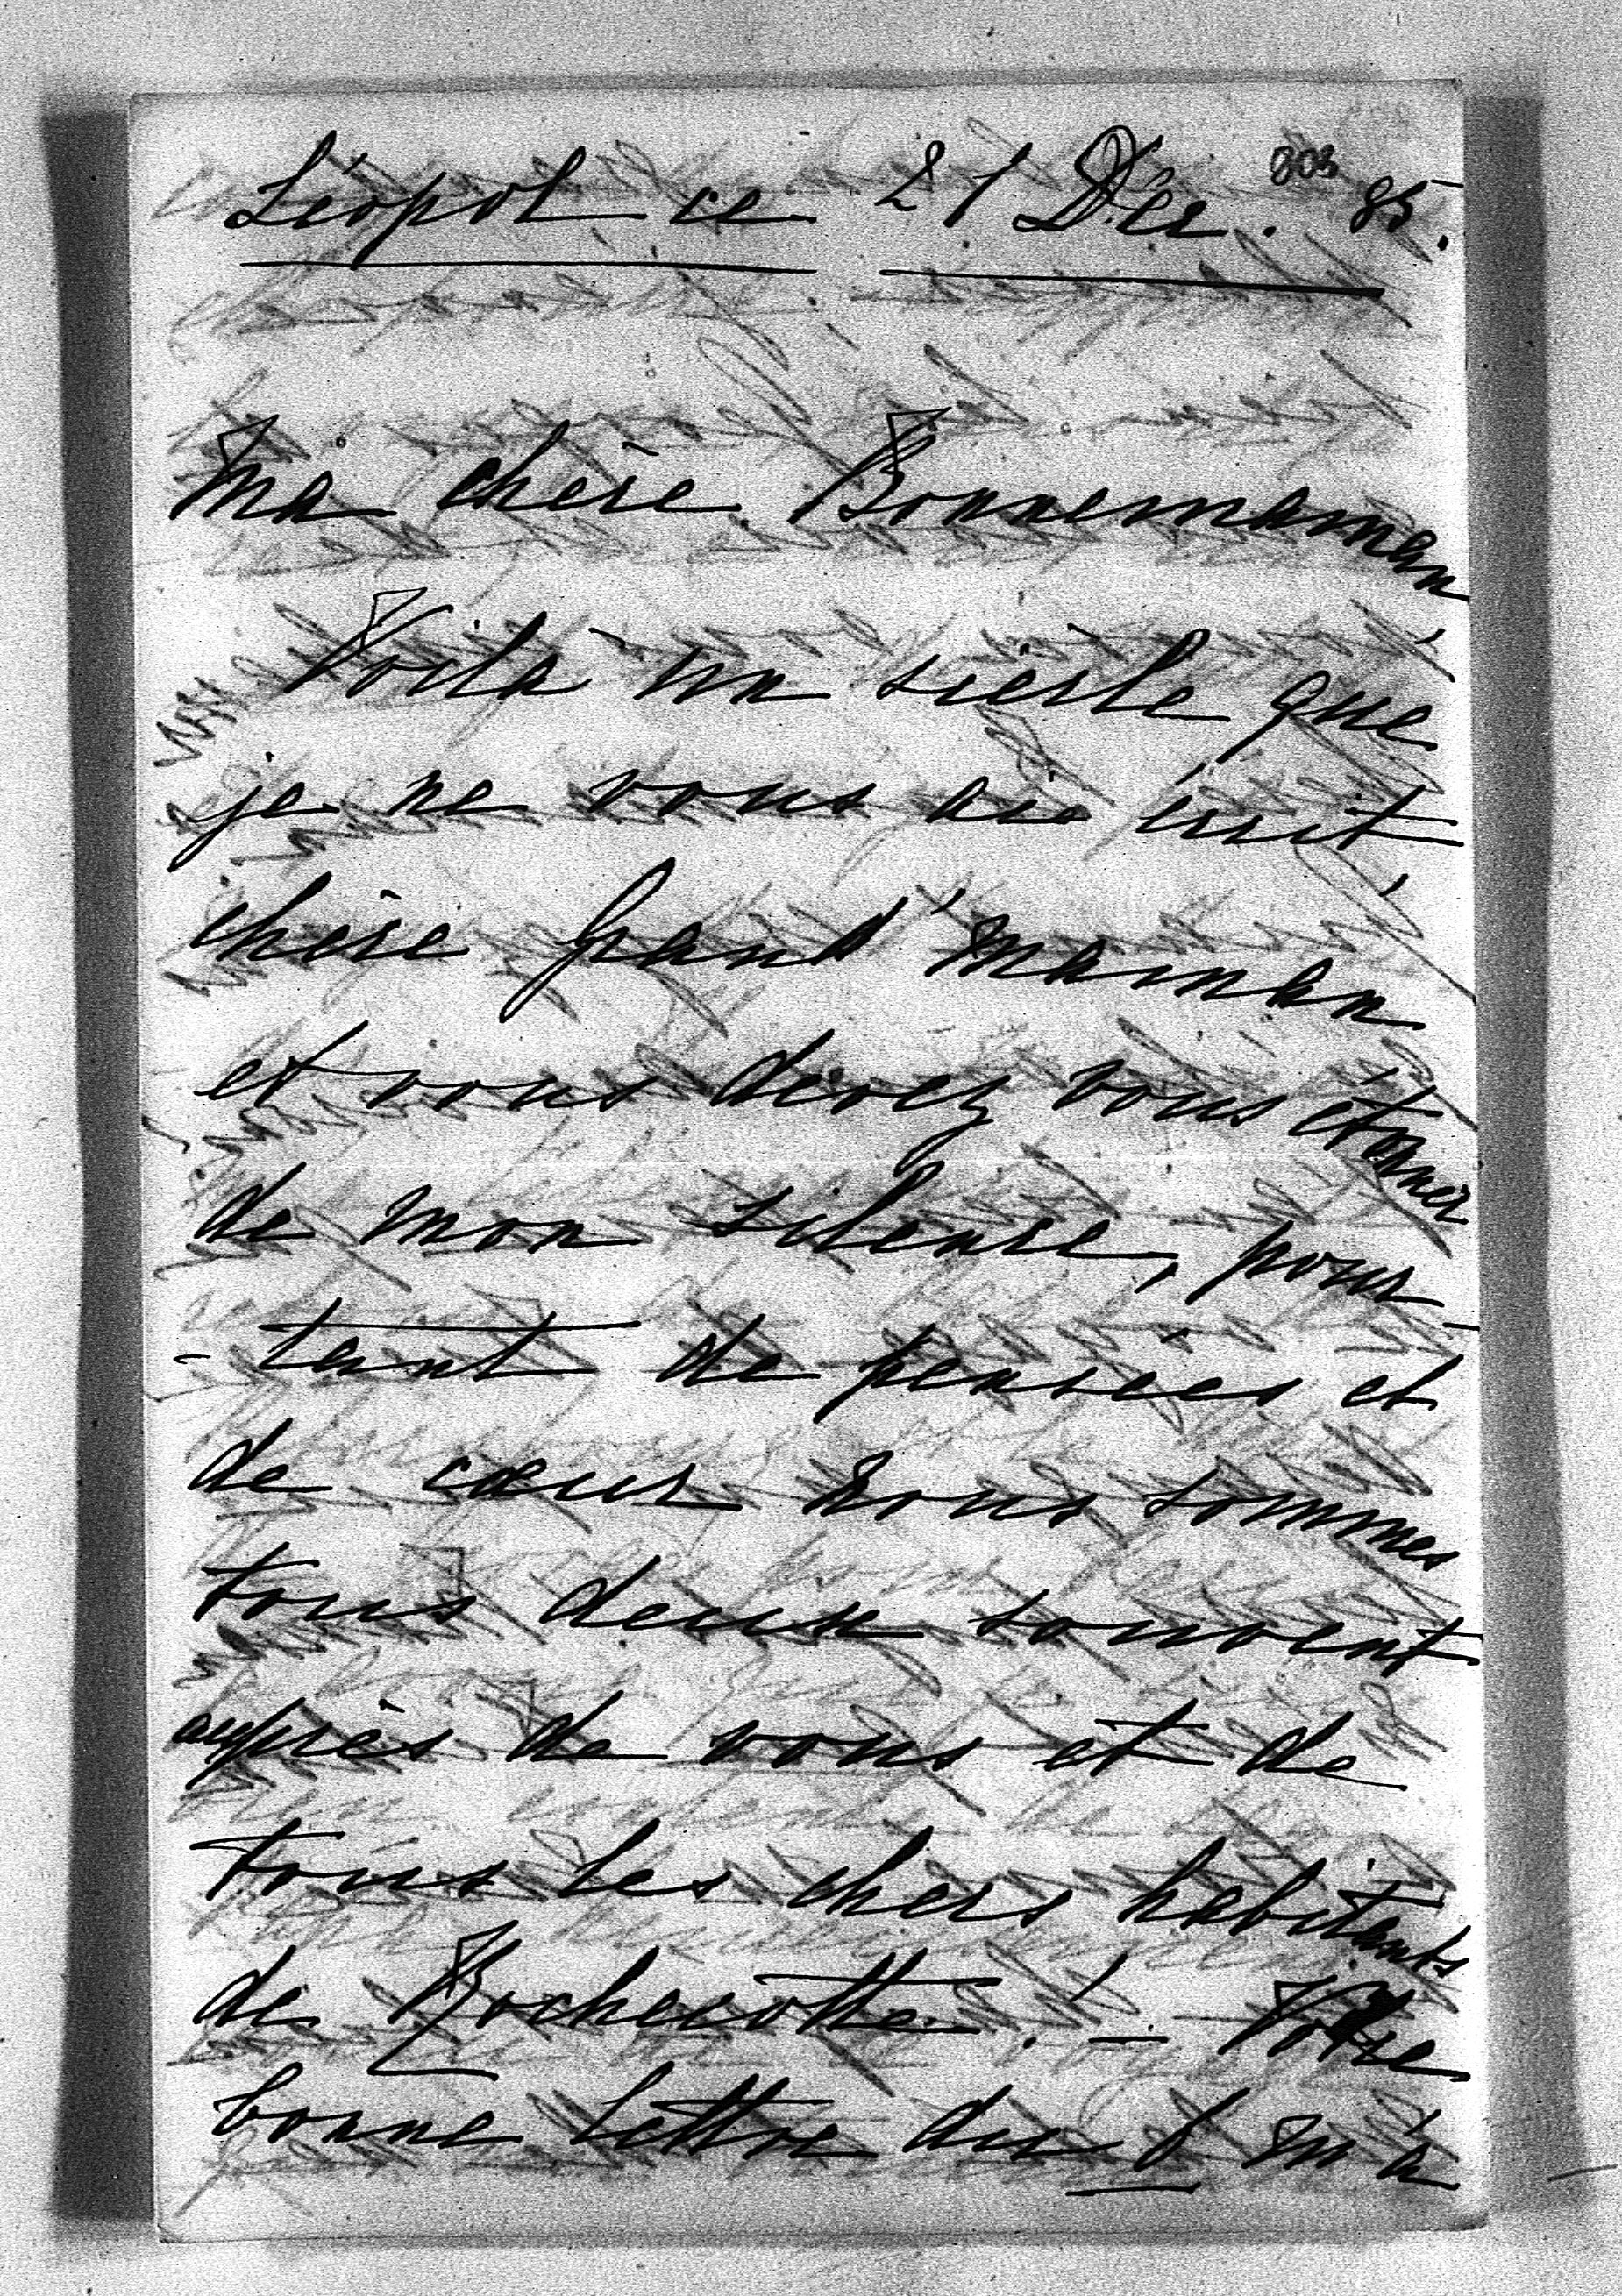 803
Léopol ce 21 Déc. 85.
Ma chère Bonnemaman
Voila un siècle que
je ne vous ai écrit
chère grand'maman
et vous devez vous étonner
de mon silence, pour
- tant de pensées et
de cœur nous sommes
tous deux souvent
auprès de vous et de
tous les chers habitants
de Rochecotte! — Votre
bonne lettre du 6 m'a